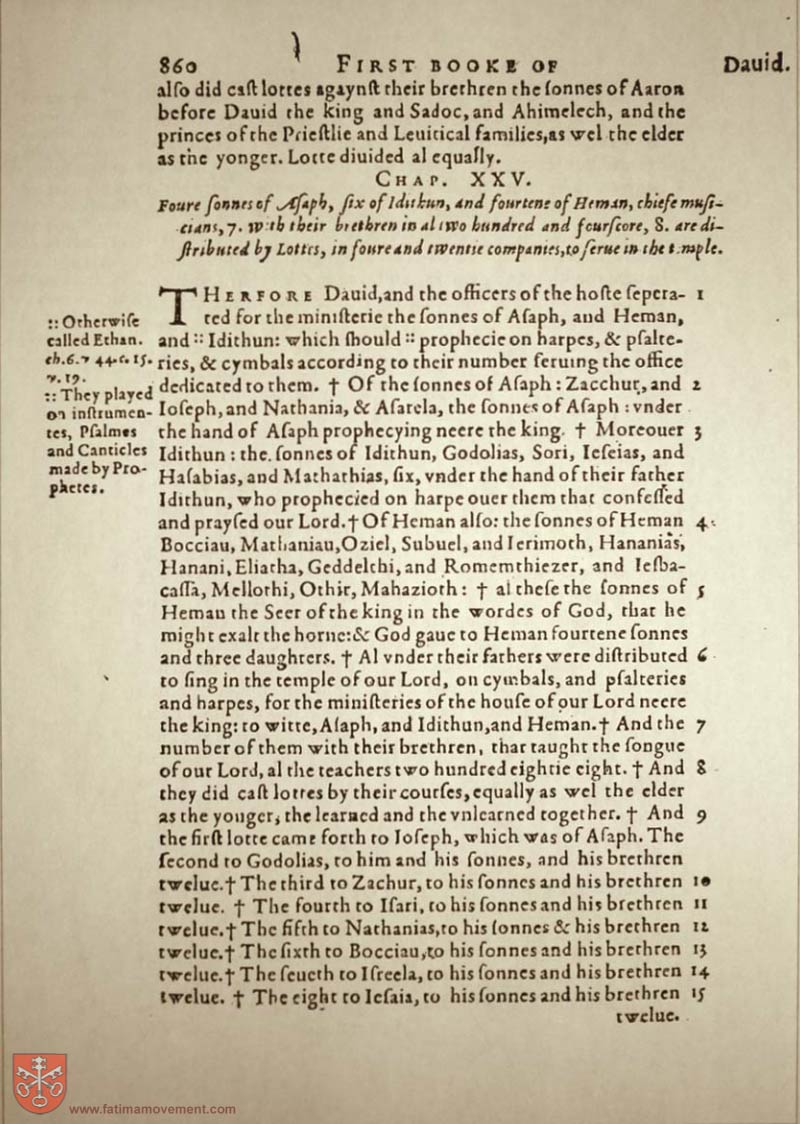 860 FIRST BOOKE OF Dauid.
alſo did caſt lottes agaynſt their brethren the ſonnes of Aaron
before Dauid the king and Sadoc, and Ahimelech, and the
princes of the Prieſtlie and Leuitical families, as wel the elder
as the yonger. Lotte diuided al equally.
CHAP. XXV.
Foure ſonnes of Aſaph, ſix of Idithun, and fourtene of Heman, chiefe muſi-
cians, 7. with their brethren in al two hundred and fourſcore, 8. are di-
ſtributed by Lottes, in foure and twentie companies, to ſerue in the temple.
THERFORE Dauid, and the officers of the hoſte ſepera- 1
ted for the miniſterie the ſonnes of Aſaph, and Heman,
and :: Idithun: which ſhould :: prophecie on harpes, & pſalte-
ries, & cymbals according to their number ſeruing the office
dedicated to them. † Of the ſonnes of Aſaph: Zacchur, and 2
Ioſeph, and Nathania, & Aſarela, the ſonnes of Aſaph: vnder
the hand of Aſaph prophecying neere the king. † Moreouer 3
Idithun: the ſonnes of Idithun, Godolias, Sori, Ieſeias, and
Haſabias, and Mathathias, ſix, vnder the hand of their father
Idithun, who prophecied on harpe ouer them that confeſſed
and prayſed our Lord. † Of Heman alſo: the ſonnes of Heman 4
Bocciau, Mathaniau, Oziel, Subuel, and Ierimoth, Hananias,
Hanani, Eliatha, Geddelthi, and Romemthiezer, and Ieſba-
caſſa, Mellothi, Othir, Mahazioth: † al theſe the ſonnes of 5
Heman the Seer of the king in the wordes of God, that he
might exalt the horne: & God gaue to Heman fourtene ſonnes
and three daughters. † Al vnder their fathers were diſtributed 6
to ſing in the temple of our Lord, on cymbals, and pſalteries
and harpes, for the miniſteries of the houſe of our Lord neere
the king: to witte, Aſaph, and Idithun, and Heman. † And the 7
number of them with their brethren, that taught the ſongue
of our Lord, al the teachers two hundred eightie eight. † And 8
they did caſt lottes by their courſes, equally as wel the elder
as the yonger, the learned and the vnlearned together. † And 9
the firſt lotte came forth to Ioſeph, which was of Aſaph. The
ſecond to Godolias, to him and his ſonnes, and his brethren
twelue. † The third to Zachur, to his ſonnes and his brethren 10
twelue. † The fourth to Iſari, to his ſonnes and his brethren 11
twelue. † The fifth to Nathanias, to his ſonnes & his brethren 12
twelue. † The ſixth to Bocciau, to his ſonnes and his brethren 13
twelue. † The ſeueth to Iſreela, to his ſonnes and his brethren 14
twelue. † The eight to Ieſaia, to his ſonnes and his brethren 15
twelue.
:: Otherwiſe
called Ethan.
ch. 6. v 44. c. 15.
v. 19.
:: They played
on inſtrumen-
tes, Pſalmes
and Canticles
made by Pro-
phetes.
www.fatimamovement.com